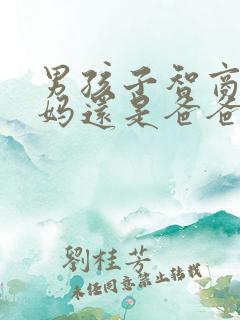 男孩子智商
妈還是爸爸
劉桂芳
未经同意禁止转载